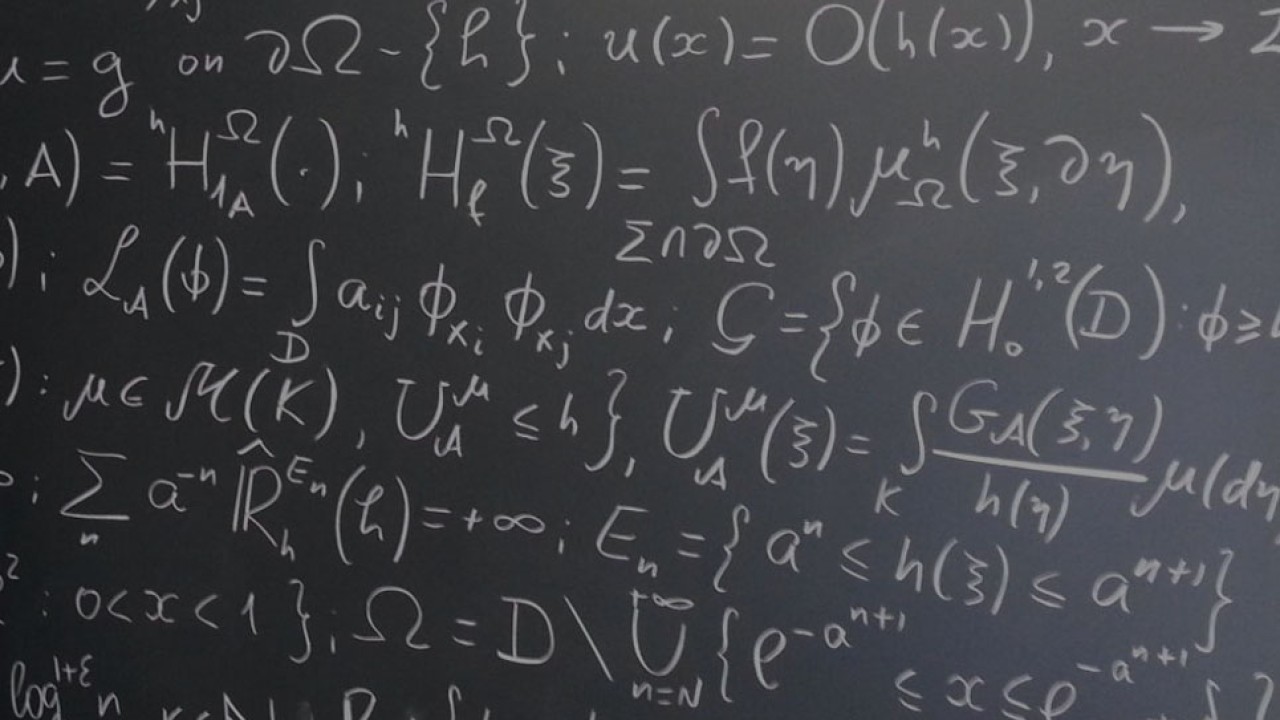 u = g on ∂Ω - {h}; u(x) = O(h(x)), x →
, A) = ʰH^Ω_{1_A}(·); ʰH^Ω_f(ξ) = ∫_{Σ∩∂Ω} f(η) μ^h_Ω(ξ, ∂η),
); ℒ_A(ϕ) = ∫_D a_{ij} ϕ_{x_i} ϕ_{x_j} dx; G = {ϕ ∈ H_0^{1,2}(D) : ϕ ≥
) : μ ∈ ℳ(K), U_A^μ ≤ h}, U_A^μ(ξ) = ∫_K G_A(ξ,η)/h(η) μ(dη
; Σ_n a^{-n} R̂_h^{E_n}(h) = +∞; E_n = {a^n ≤ h(ξ) ≤ a^{n+1}}
2 : 0 < x < 1}; Ω = D \ ⋃_{n=N}^{+∞} {e^{-a^{n+1}} ≤ x ≤ e^{-a^{n+1}}
log^{1+ε} n